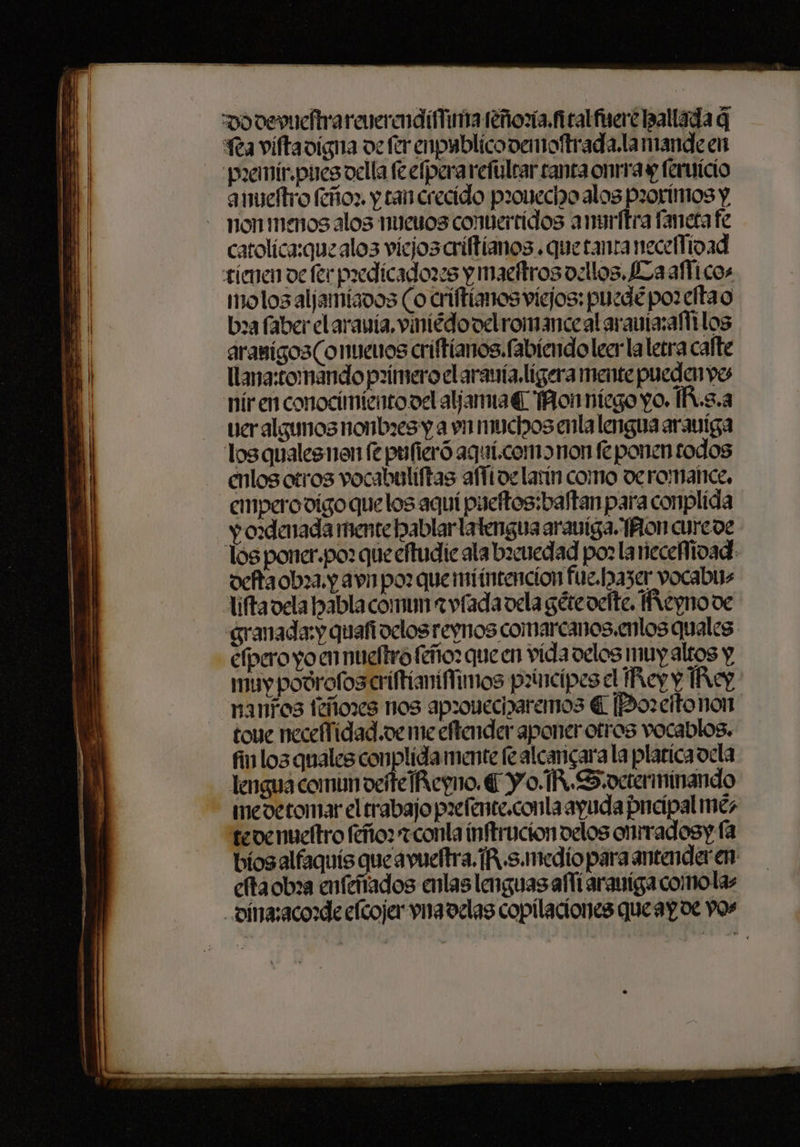 do de vuestra reuerendissima señoria. si tal fuere hallada q̃
sea vista digna de ser enpublico demostrada. la mande en
premir. pues della se espera resultar tanta onrra y seruicio
a nuestro señor. y tan crecido prouecho alos proximos y
non menos alos nueuos conuertidos a nuestra sancta fe
catolica: que alos viejos cristianos. que tanta necessidad
tienen de ser predicadores y maestros dellos. Ca assi co⸗
mo los aljamiados (o cristianos viejos: puedẽ por esta o
bra saber el arauia, viniẽdo del romance al arauia: assi los
arauigos (o nueuos cristianos. sabiendo leer la letra caste
llana: tomando primero el arauia. ligera mente pueden ve⸗
nir en conocimiento del aljamia ¶ Non niego yo. R.s. a
uer algunos nonbres y a vn muchos enla lengua arauiga
los quales non se pusierõ aqui. como non se ponen todos
enlos otros vocabulistas assi de latin como de romance.
empero digo que los aqui puestos: bastan para conplida
y ordenada mente hablar la lengua arauiga. Non cure de
los poner. por que estudie ala breuedad por la necessidad
desta obra. y avn por que mi intencion fue. hazer vocabu⸗
lista dela habla comun ⁊ vsada dela gẽte deste. Reyno de
granada: y quasi delos reynos comarcanos. enlos quales
espero yo en nuestro señor que en vida delos muy altos y
muy podrosos cristianissimos principes el Rey y Rey
na nr̃os señores nos aprouecharemos ¶ Por esto non
toue necessidad. de me estender a poner otros vocablos.
sin los quales conplida mente se alcançara la platica dela
lengua comun deste Reyno. ¶ Yo. R. S. determinando
me de tomar el trabajo presente. con la ayuda pncipal mẽ⸗
te de nuestro señor ⁊ con la instrucion delos onrrados y sa
bios alfaquis que a vuestra. R.s. medio para antender en
esta obra enseñados enlas lenguas assi arauiga como la⸗
dina: acorde escojer vna delas copilaciones que ay de vo⸗